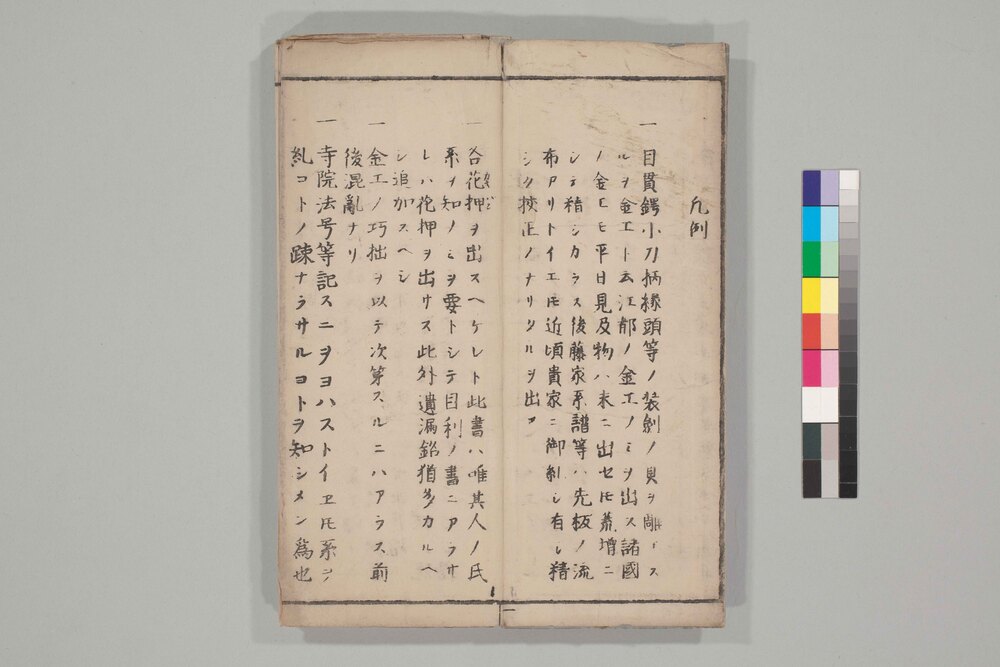 凡例
一 目貫鍔小刀柄縁頭等ノ装剣ノ具ヲ彫ース
ルヲ金工ト云江都ノ金工ノミヲ出ス諸國
ノ金工モ平日見及物ハ末ニ出セ𪜈羕増ニ
シテ精シカラス後藤家系譜等ハ先板ノ流
布アリトイエ𪜈近頃貴家ニ御糺シ有し精
シク挍正ノナリタルヲ出ス
一 各花押ヲ出スヘケレト此書ハ唯其人ノ氏
系ヲ知ノミヲ要トシテ目利ノ書ニアラサ
レハ花押ヲ出サス此外遺漏銘猶多カルヘ
シ追加スヘシ
一 金工ノ巧拙ヲ以テ次第スルニハアラス前
後混亂ナリ
一 寺院法号等記スニヲヨハストイヱ𪜈系ヲ
糺コトノ疎ナラサルヿトヲ知シメン為也